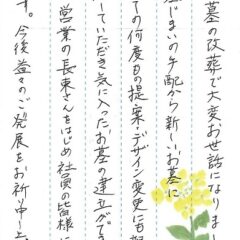 墓の改葬で大変お世話になりまし
墓じまいの手配から新しいお墓に
ての何度もの提案・デザイン変更にも
していただき気に入ったお墓の建立ができ
営業の長東さんをはじめ社員の皆様に
す。今後益々のご発展をお祈り申し上